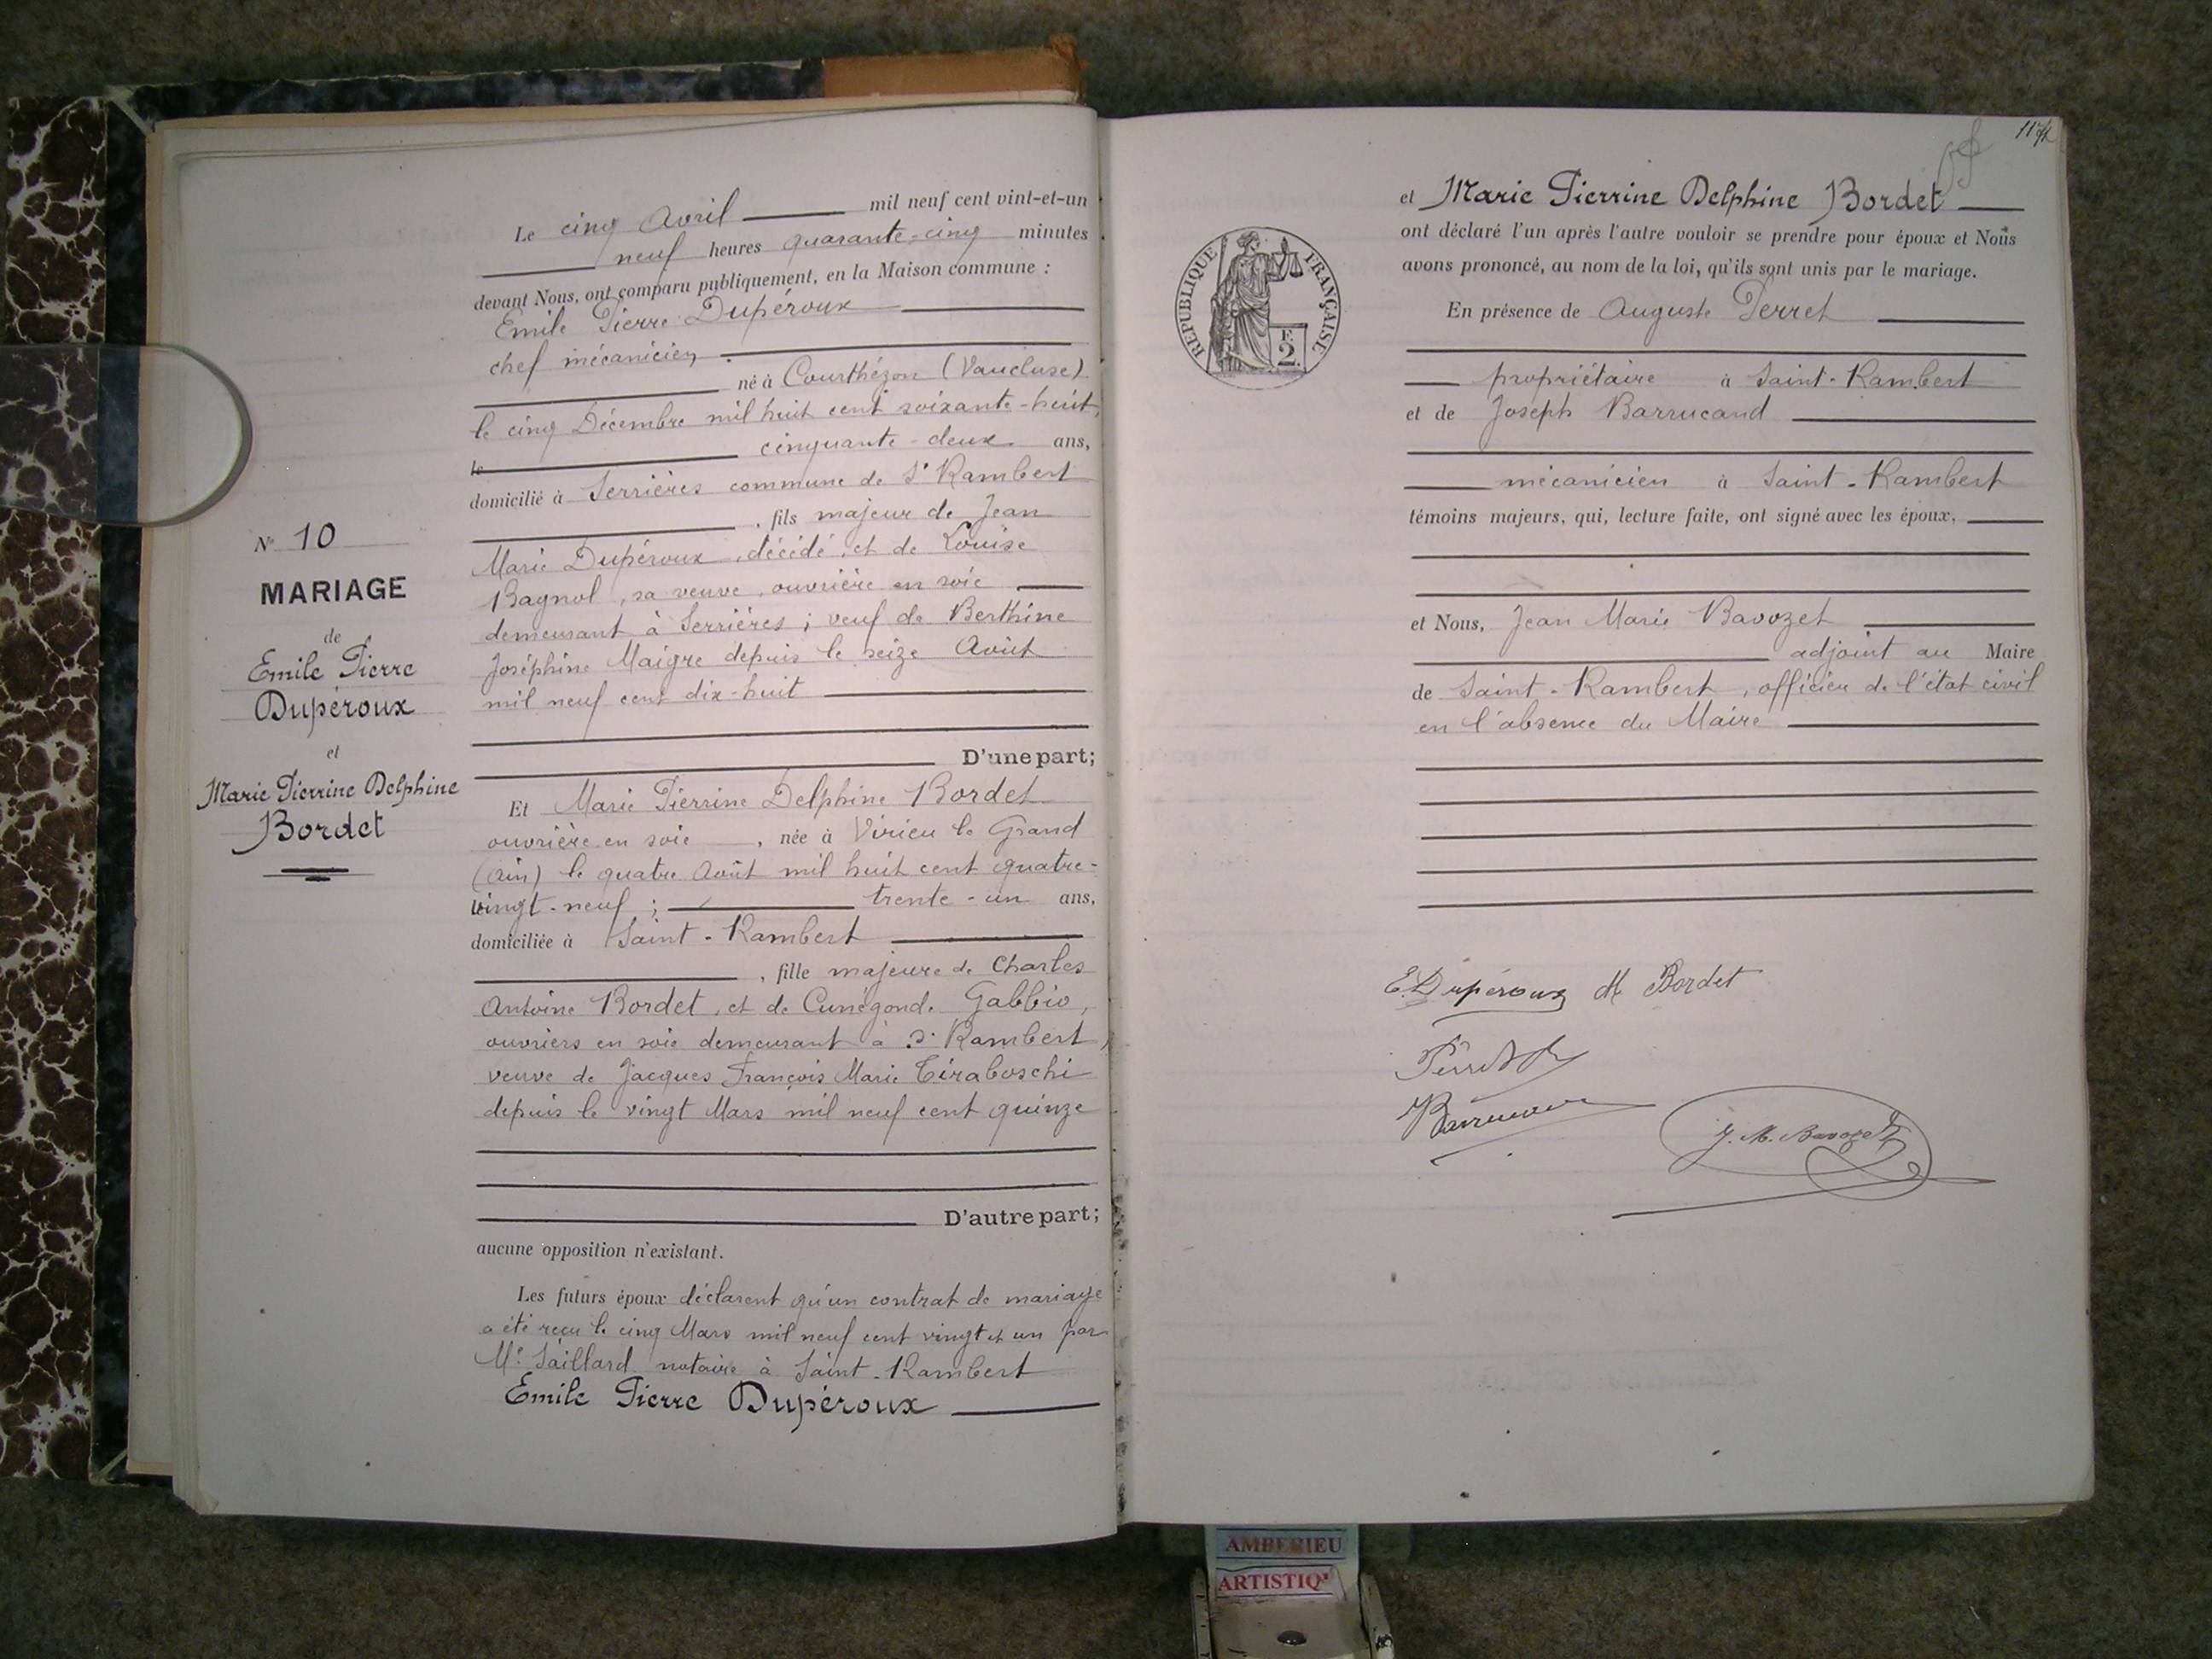 N° 10
MARIAGE
de
Emile Pierre
Dupéroux
et
Marie Pierrine Delphine
Bordet
Le cinq Avril mil neuf cent vint-et-un
neuf heures quarante-cinq minutes
devant Nous, ont comparu publiquement, en la Maison commune :
Emile Pierre Dupéroux
chef mécanicien
né à Courthézon (Vaucluse)
le cinq Décembre mil huit cent soixante-huit,
le cinquante-deux ans,
domicilié à Serrières commune de St Rambert
, fils majeur de Jean
Marie Dupéroux, décédé, et de Louise
Bagnol, sa veuve, ouvrière en soie
demeurant à Serrières ; veuf de Berthine
Joséphine Maigre depuis le seize Août
mil neuf cent dix-huit
D'une part;
Et Marie Pierrine Delphine Bordet
ouvrière en soie , née à Virieu le Grand
(Ain) le quatre Août mil huit cent quatre-
vingt-neuf ; trente-un ans,
domiciliée à Saint-Rambert
, fille majeure de Charles
Antoine Bordet, et de Cunégonde Gabbio,
ouvriers en soie demeurant à St Rambert,
veuve de Jacques François Marie Tiraboschi
depuis le vingt Mars mil neuf cent quinze
D'autre part;
aucune opposition n'existant.
Les futurs époux déclarent qu'un contrat de mariage
a été reçu le cinq Mars mil neuf cent vingt et un par
Me Saillard notaire à Saint-Rambert
Emile Pierre Dupéroux
et Marie Pierrine Delphine Bordet
ont déclaré l'un après l'autre vouloir se prendre pour époux et Nous
avons prononcé, au nom de la loi, qu'ils sont unis par le mariage.
En présence de Auguste Perret
propriétaire à Saint-Rambert
et de Joseph Barrucand
mécanicien à Saint-Rambert
témoins majeurs, qui, lecture faite, ont signé avec les époux,
et Nous, Jean Marie Bavozet
adjoint au Maire
de Saint-Rambert, officier de l'état civil
en l'absence du Maire
RÉPUBLIQUE FRANÇAISE
F.
2
E. Dupéroux M Bordet
Perret
Barrucand
J. M. Bavozet
AMBERIEU
ARTISTIQ